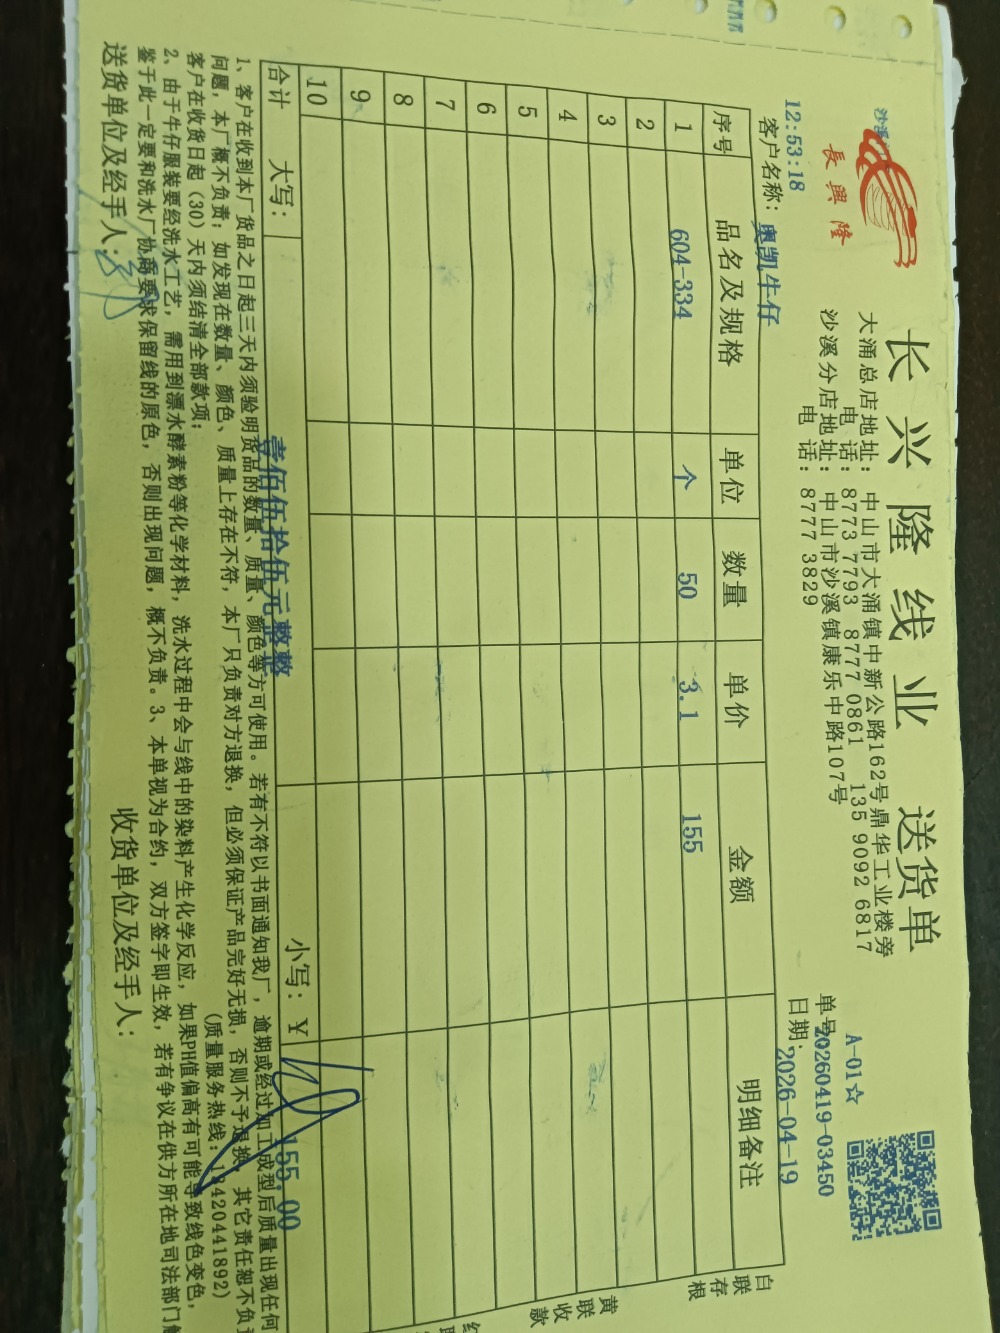 长兴隆线业 送货单
長興隆
沙溪
大涌总店地址：中山市大涌镇中新公路162号鼎华工业楼旁
电 话：8773 7793 8777 0861 135 9092 6817
沙溪分店地址：中山市沙溪镇康乐中路107号
电 话：8777 3829
A-01☆
单号：20260419-03450
日期：2026-04-19
12:53:18
客户名称：奥凯牛仔
序号 品名及规格 单位 数量 单价 金额 明细备注
1 604-334 个 50 3.1 155
2
3
4
5
6
7
8
9
10
合计 大写：壹佰伍拾伍元整 小写：￥ 155.00
1、客户在收到本厂货品之日起三天内须验明货品的数量、质量、颜色等方可使用。若有不符以书面通知我厂，逾期或经过加工成型后质量出现任何
问题，本厂概不负责；如发现在数量、颜色、质量上存在不符，本厂只负责对方退换，但必须保证产品完好无损，否则不予退换，其它责任恕不负责
客户在收货日起（30）天内须结清全部款项； （质量服务热线：13420441892）
2、由于牛仔服装要经洗水工艺，需用到漂水酵素粉等化学材料，洗水过程中会与线中的染料产生化学反应，如果PH值偏高有可能导致线色变色，
鉴于此一定要和洗水厂协商要求保留线的原色，否则出现问题，概不负责。3、本单视为合约，双方签字即生效，若有争议在供方所在地司法部门
送货单位及经手人： 收货单位及经手人：
白联存根
黄联收款